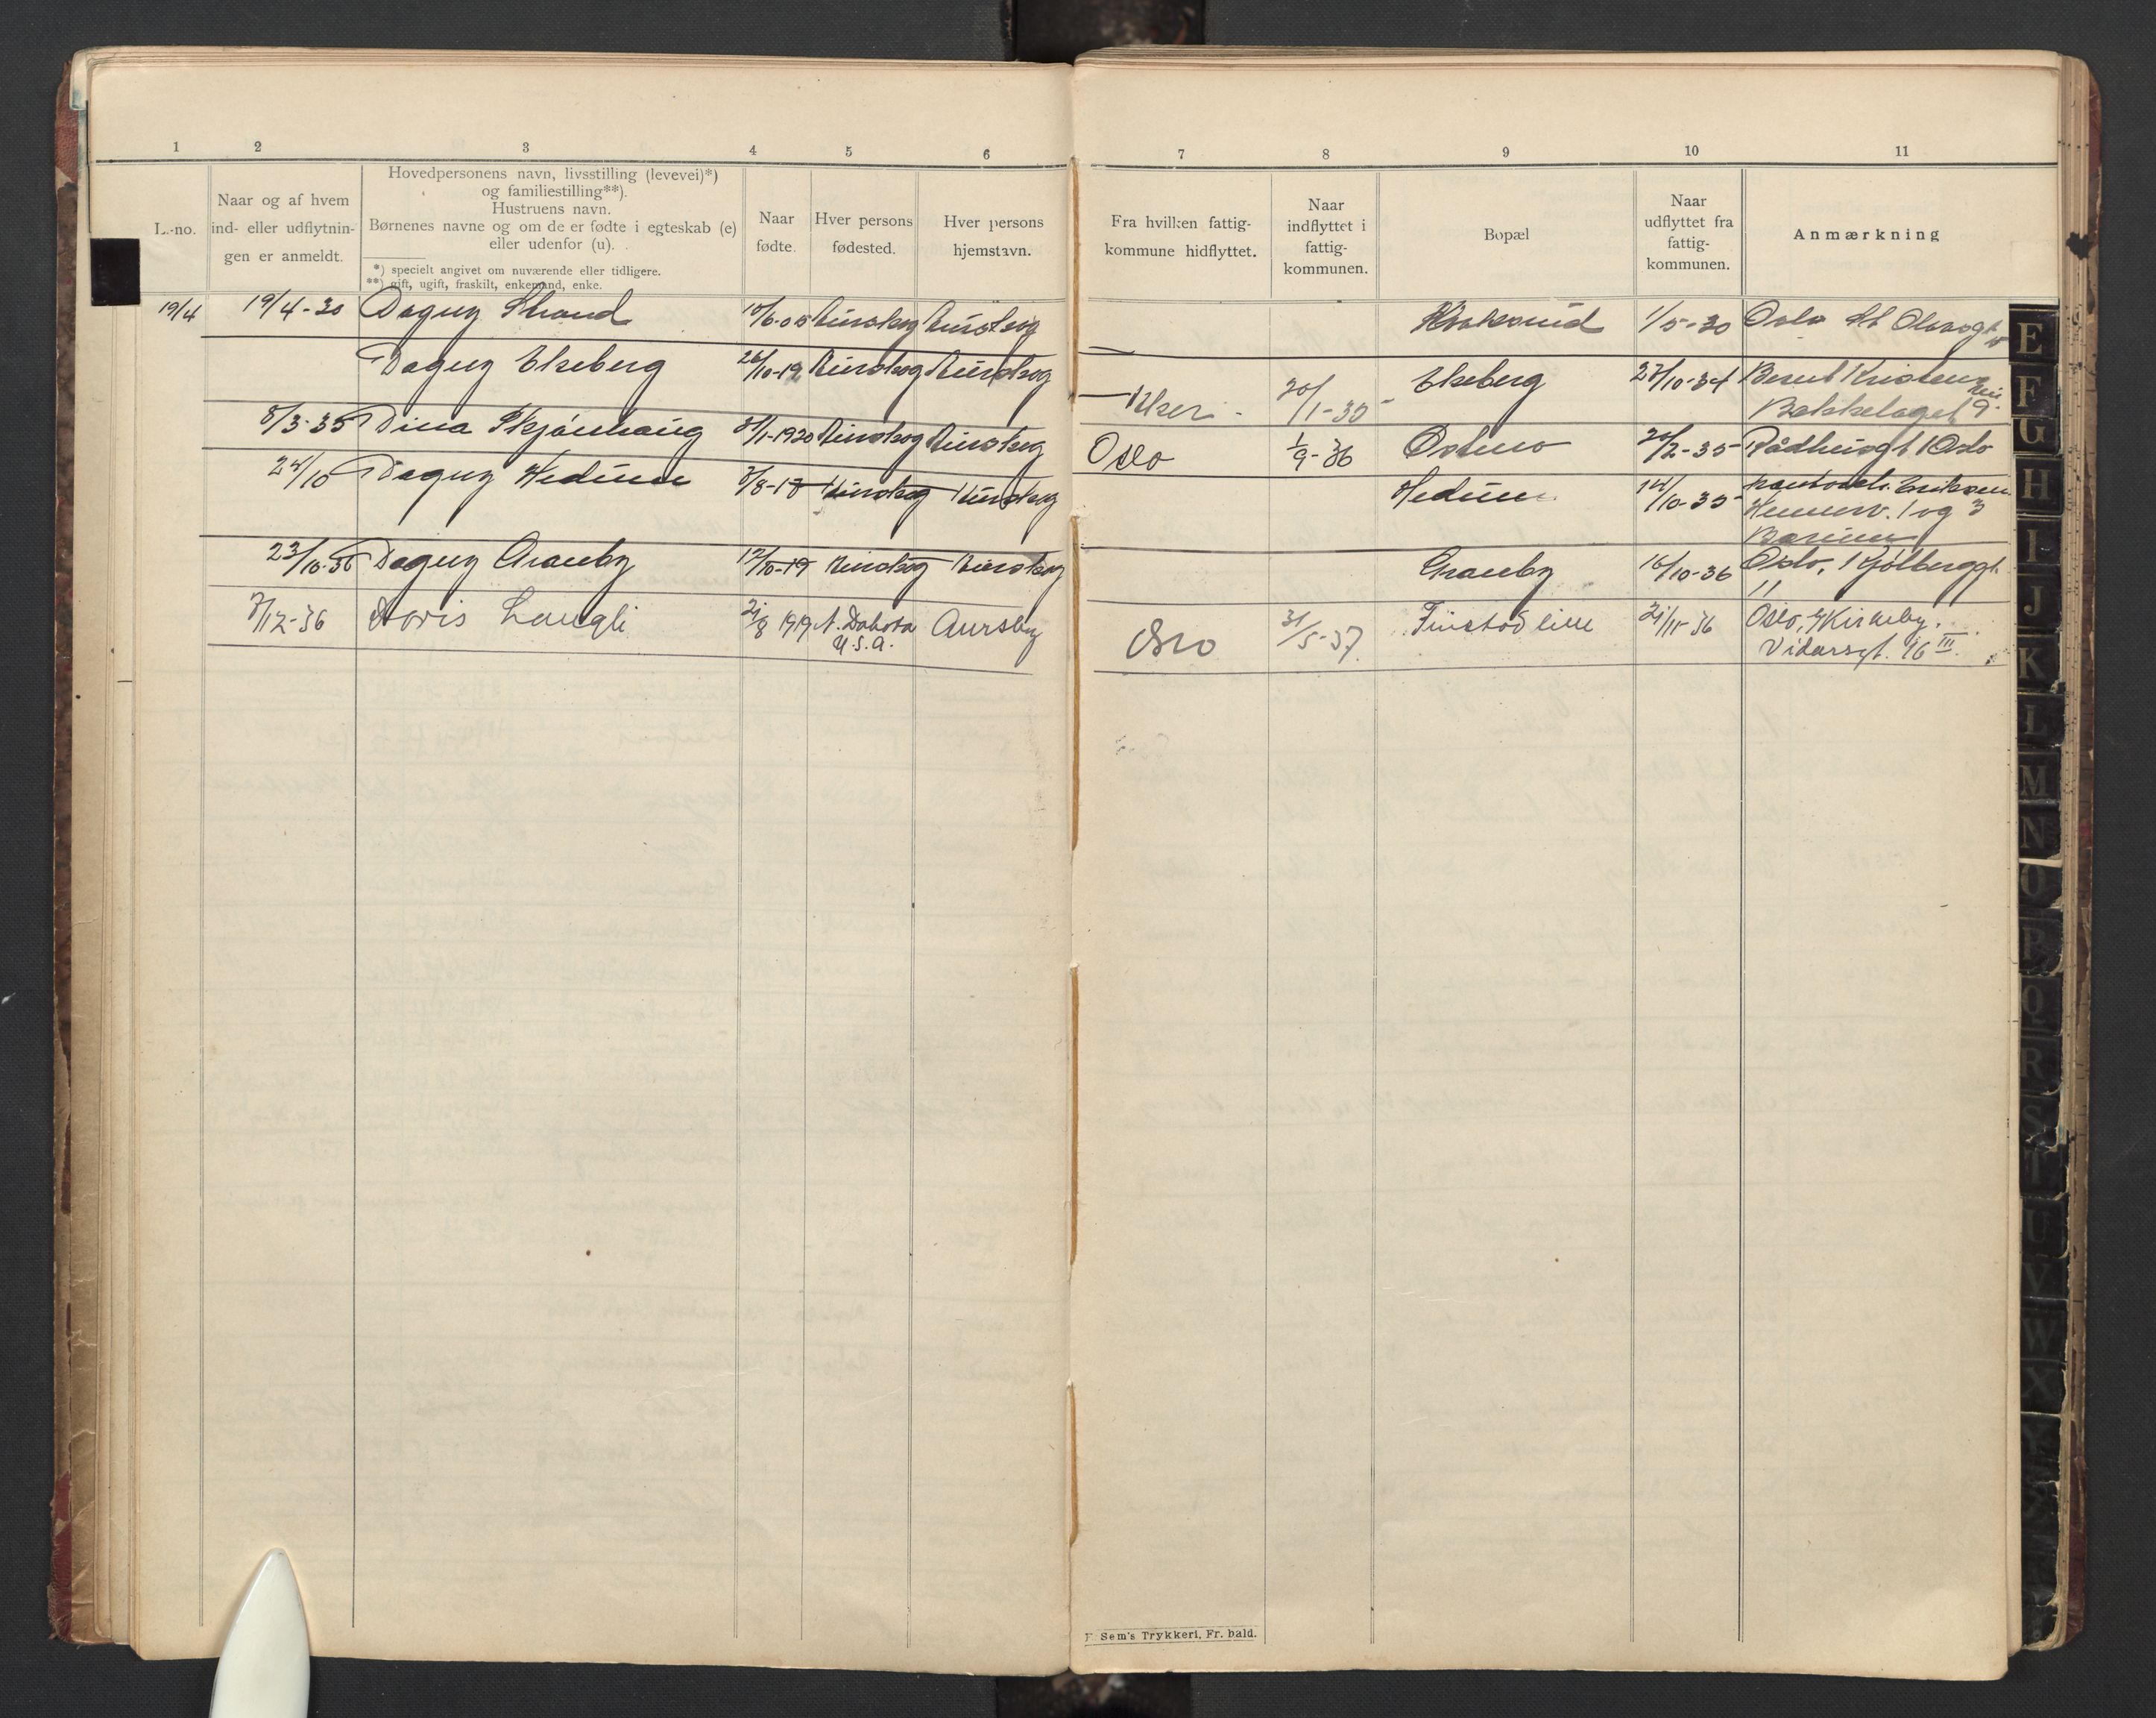 1 2 3 4 5 6 7 8 9 10 11
L.-no.
Naar og af hvem
ind- eller udflytnin-
gen er anmeldt.
Hovedpersonens navn, livsstilling (levevei)*)
og familiestilling**).
Hustruens navn.
Børnenes navne og om de er fødte i egteskab (e)
eller udenfor (u).
*) specielt angivet om nuværende eller tidligere.
**) gift, ugift, fraskilt, enkemand, enke.
Naar
fødte.
Hver persons
fødested.
Hver persons
hjemstavn.
Fra hvilken fattig-
kommune hidflyttet.
Naar
indflyttet i
fattig-
kommunen.
Bopæl
Naar
udflyttet fra
fattig-
kommunen.
Anmærkning
19/4 19/4-30 Dagny Strand 10/6-05 Aurskog Aurskog 1/5-30 Oslo St Olavsgt
Dagny Elseberg 26/10-19 Aurskog Aurskog Elseberg 27/10-34 Bernt Kristen
20/1-35 Bækkelaget 9
8/3-35 Dina Skjønhaug 31/1-1920 Aurskog Aurskog Oslo 1/9-36 Østmo 20/2-35 Rådhusgt 1 Oslo
24/10 Dagny Hedum 3/8-18 Aurskog Aurskog Hedum 14/10-35 Eriksen
1 og 3
Bærum
23/10-36 Dagny Granby 12/10-19 Aurskog Aurskog Granby 16/10-36 Oslo, Kjølberggt.
11
3/12-36 Doris Langli 21/8 1919 N. Dakota Aursby Tunstad lille 21/11-36 Oslo, Kirkeby.
U.S.A. Oslo 31/5-37 Vidarsgt. 16 III.
E
F
G
H
I
J
K
L
M
N
O
P
Q
R
S
T
U
V
W
X
F. Sem's Trykkeri, Fr. hald.